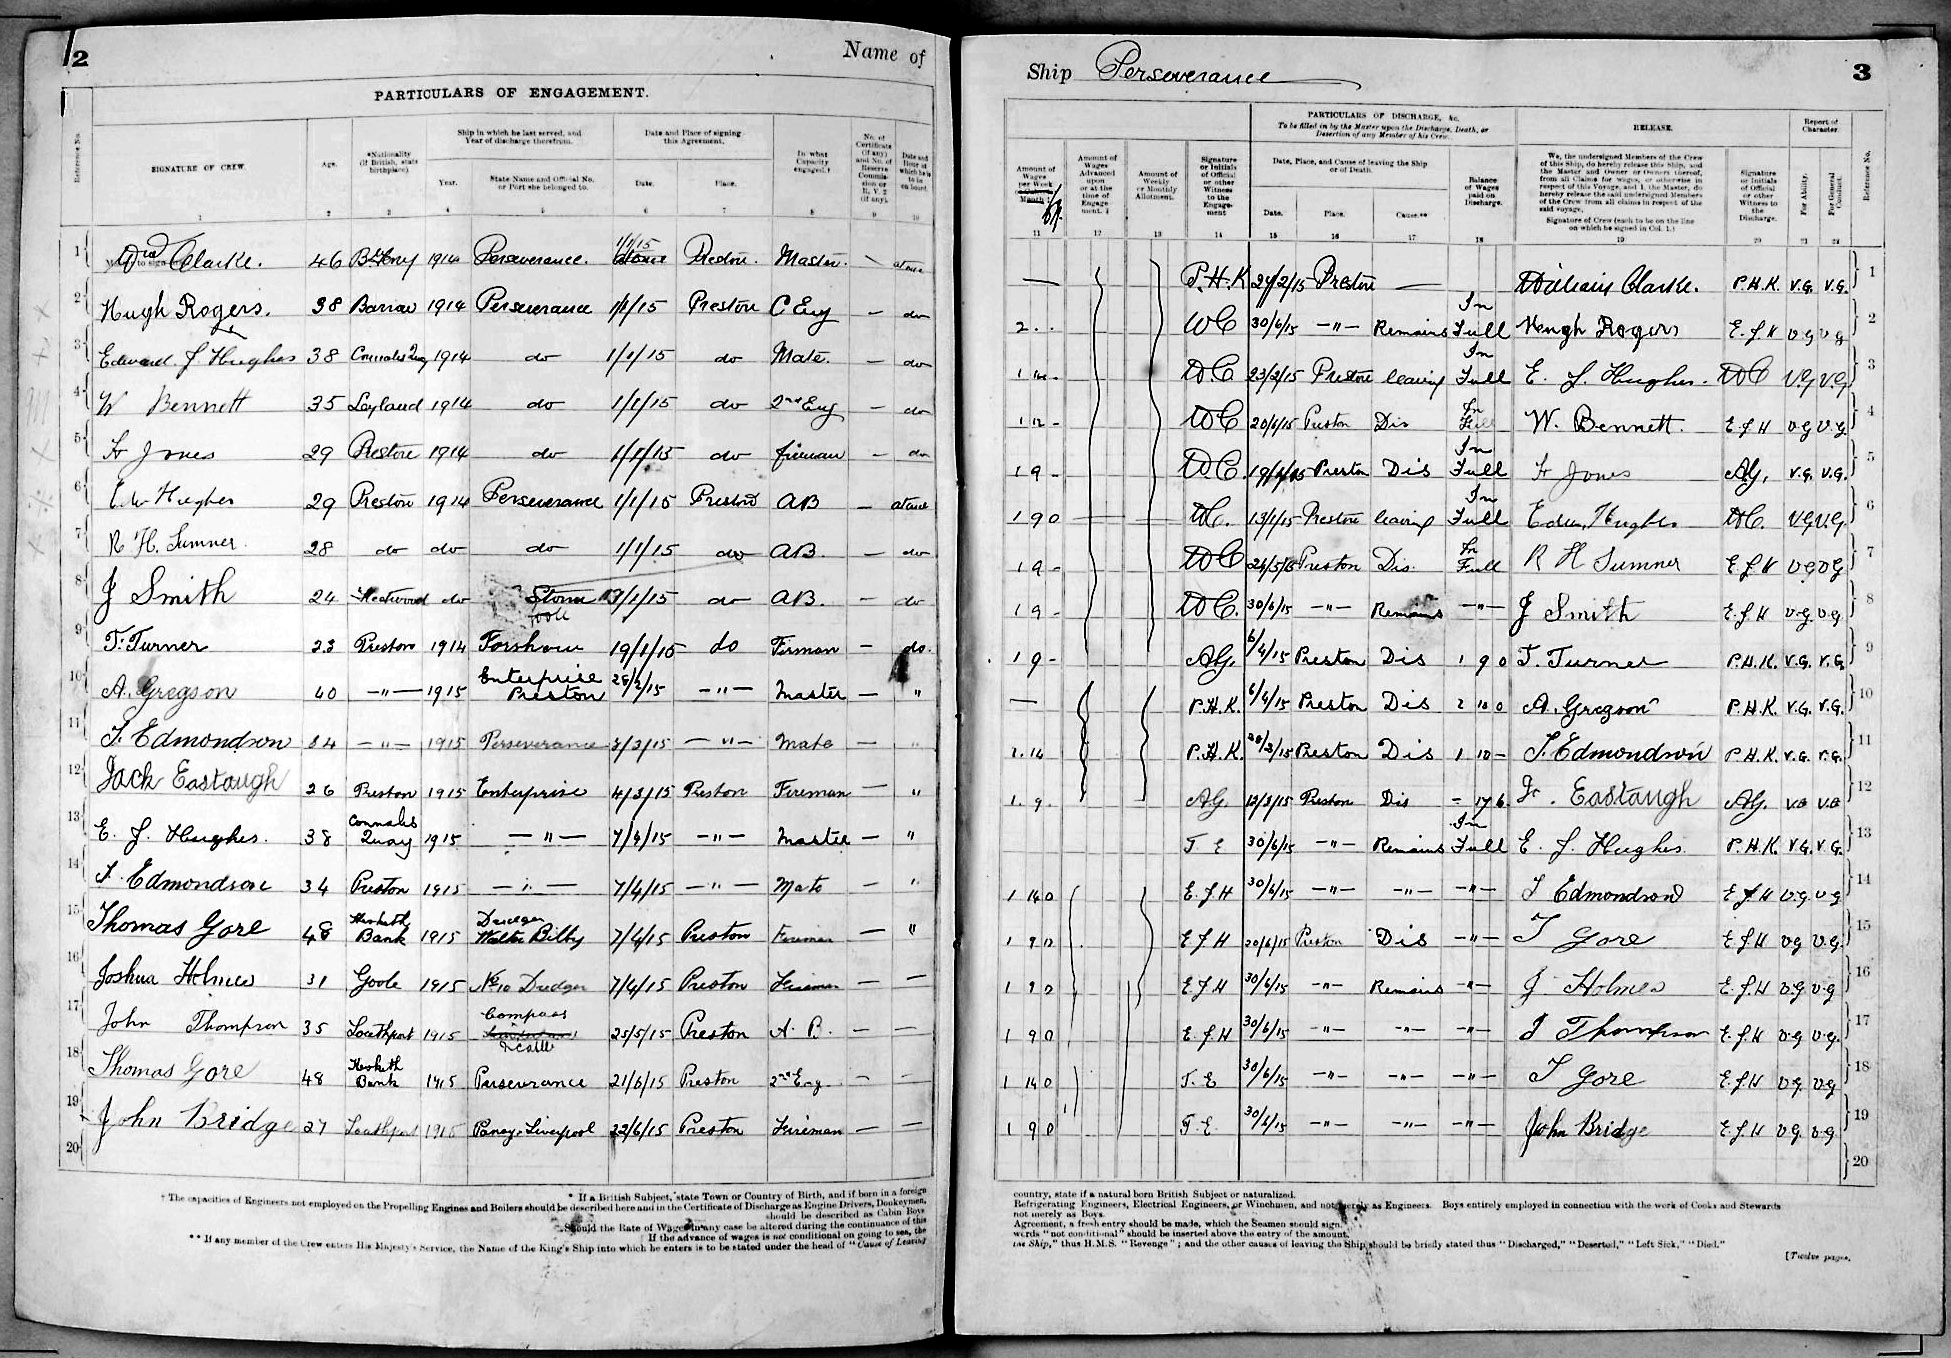 2
Name of
PARTICULARS OF ENGAGEMENT.
Reference No.
SIGNATURE OF CREW.
Age.
*Nationality (if British, state birthplace).
Ship in which he last served, and Year of discharge therefrom.
Year.
State Name and Official No. or Port she belonged to.
Date and Place of signing this Agreement.
Date.
Place.
In what Capacity engaged.†
No. of Certificate (if any) and No. of Reserve Commission or R.V.2 (if any).
Date and Hour at which he is to be on board.
1 2 3 4 5 6 7 8 9 10
1 Wm Clarke. 46 1914 Perseverance. 1/1/15 Preston. Master. at once
2 Hugh Rogers. 38 Barrow 1914 Perseverance 1/1/15 Preston C Eng — do
3 Edward J Hughes 38 Connahs Quay 1914 do 1/1/15 do Mate. — do
4 W Bennett 35 Leyland 1914 do 1/1/15 do 2nd Eng — do
5 H Jones 29 Preston 1914 do 1/1/15 do fireman — do
6 E. W Hughes 29 Preston 1914 Perseverance 1/1/15 Preston AB — at once
7 R H. Sumner. 28 do do do 1/1/15 do AB. — do
8 J Smith 24 Fleetwood do 13/1/15 do AB. — do
9 T. Turner 23 Preston 1914 Forshaw 19/1/15 do Firman — do.
10 A. Gregson 40 —"— 1915 Enterprise Preston 28/2/15 —"— Master — "
11 T. Edmondson 34 —"— 1915 Perseverance 3/3/15 —"— Mate — "
12 Jack Eastaugh 26 Preston 1915 Enterprise 4/3/15 Preston Fireman — "
13 E. J. Hughes. 38 Connahs Quay 1915 —"— 7/4/15 —"— Master — "
14 T. Edmondson 34 Preston 1915 —"— 7/4/15 —"— Mate — "
15 Thomas Gore 48 Hesketh Bank 1915 Dredger Walter Bilby 7/4/15 Preston Fireman — "
16 Joshua Holmes 31 Goole 1915 No 10 Dredger 7/4/15 Preston Fireman — —
17 John Thompson 35 Southport 1915 Compass 25/5/15 Preston A. B. — —
18 Thomas Gore 48 Hesketh Bank 1915 Perseverance 21/6/15 Preston 2nd Eng — —
19 John Bridge 27 Southport 1915 Liverpool 22/6/15 Preston Fireman — —
20
* If a British Subject, state Town or Country of Birth, and if born in a foreign
† The capacities of Engineers not employed on the Propelling Engines and Boilers should be described here and in the Certificate of Discharge as Engine Drivers, Donkeymen,
should be described as Cabin Boys
Should the Rate of Wages in any case be altered during the continuance of this
If the advance of wages is not conditional on going to sea, the
** If any member of the Crew enters His Majesty's Service, the Name of the King's Ship into which he enters is to be stated under the head of "Cause of Leaving
Ship Perseverance
3
Amount of Wages per Week
Amount of Wages Advanced upon or at the time of Engagement.‡
Amount of Weekly or Monthly Allotment.
Signature or Initials of Official or other Witness to the Engagement
PARTICULARS OF DISCHARGE, &c.
To be filled in by the Master upon the Discharge, Death, or Desertion of any Member of his Crew.
Date, Place, and Cause of leaving the Ship or of Death.
Date.
Place.
Cause.**
Balance of Wages paid on Discharge.
RELEASE.
We, the undersigned Members of the Crew of this Ship, do hereby release this Ship, and the Master and Owner or Owners thereof, from all Claims for Wages, or otherwise in respect of this Voyage, and I, the Master, do hereby release the said undersigned Members of the Crew from all claims in respect of the said voyage.
Signature of Crew (each to be on the line on which he signed in Col. 1.)
Signature or Initials of Official or other Witness to the Discharge.
Report of Character.
For Ability.
For General Conduct.
Reference No.
11 12 13 14 15 16 17 18 19 20 21 22
— P.H.K 24/2/15 Preston — William Clarke. P.H.K. V.G. V.G. 1
2.. WC 30/6/15 —"— Remains In Full Hugh Rogers E.J.H V.G V.G 2
1 14 - WC 23/2/15 Preston leaving In Full E. J. Hughes. WC V.G V.G 3
1 12 - WC 20/6/15 Preston Dis In Full W. Bennett. E J H V.G V.G 4
1 9 - WC. Preston Dis In Full H Jones A.G. V.G. V.G. 5
1 9 0 WC. 13/1/15 Preston leaving In Full Hughes WC. V.G V.G. 6
1 9 - WC 24/5/15 Preston Dis. In Full R H Sumner E J H V.G V.G 7
1 9 - WC. 30/6/15 —"— Remains —"— J Smith E. J H V.G V.G 8
1 9 - AG. 6/4/15 Preston Dis 1 9 0 T. Turner P.H.K. V.G. V.G. 9
— P.H.K. 6/4/15 Preston Dis 2 10 0 A. Gregson P.H.K V.G. V.G. 10
1. 14 P.H.K. Preston Dis 1 10 - T. Edmondson P.H.K V.G. V.G. 11
1. 9. AG. 12/3/15 Preston Dis - 17 6. Eastaugh AG. V.G V.G 12
T E 30/6/15 —"— Remains In Full E. J. Hughes P.H.K. V.G. V.G. 13
1 14 0 E.J H 30/6/15 —"— —"— —"— T Edmondson E J H V.G. V.G 14
1 9 0 E J H 20/6/15 Preston Dis —"— T Gore E. J H V.G V.G. 15
1 9 0 E J H 30/6/15 —"— Remains —"— J Holmes E. J. H V.G V.G 16
1 9 0 E. J H 30/6/15 —"— —"— —"— J Thompson E. J. H V.G V.G. 17
1 14 0 T. E 30/6/15 —"— —"— —"— T Gore E. J. H V.G. V.G 18
1 9 0 T. E 30/6/15 —"— —"— —"— John Bridge E. J. H V.G. V.G 19
20
country, state if a natural born British Subject or naturalized.
Refrigerating Engineers, Electrical Engineers, or Winchmen, and not merely as Engineers. Boys entirely employed in connection with the work of Cooks and Stewards
not merely as Boys.
Agreement, a fresh entry should be made, which the Seamen should sign.
words "not conditional" should be inserted above the entry of the amount.
the Ship," thus H.M.S. "Revenge"; and the other causes of leaving the Ship should be briefly stated thus "Discharged," "Deserted," "Left Sick," "Died."
[Twelve pages.